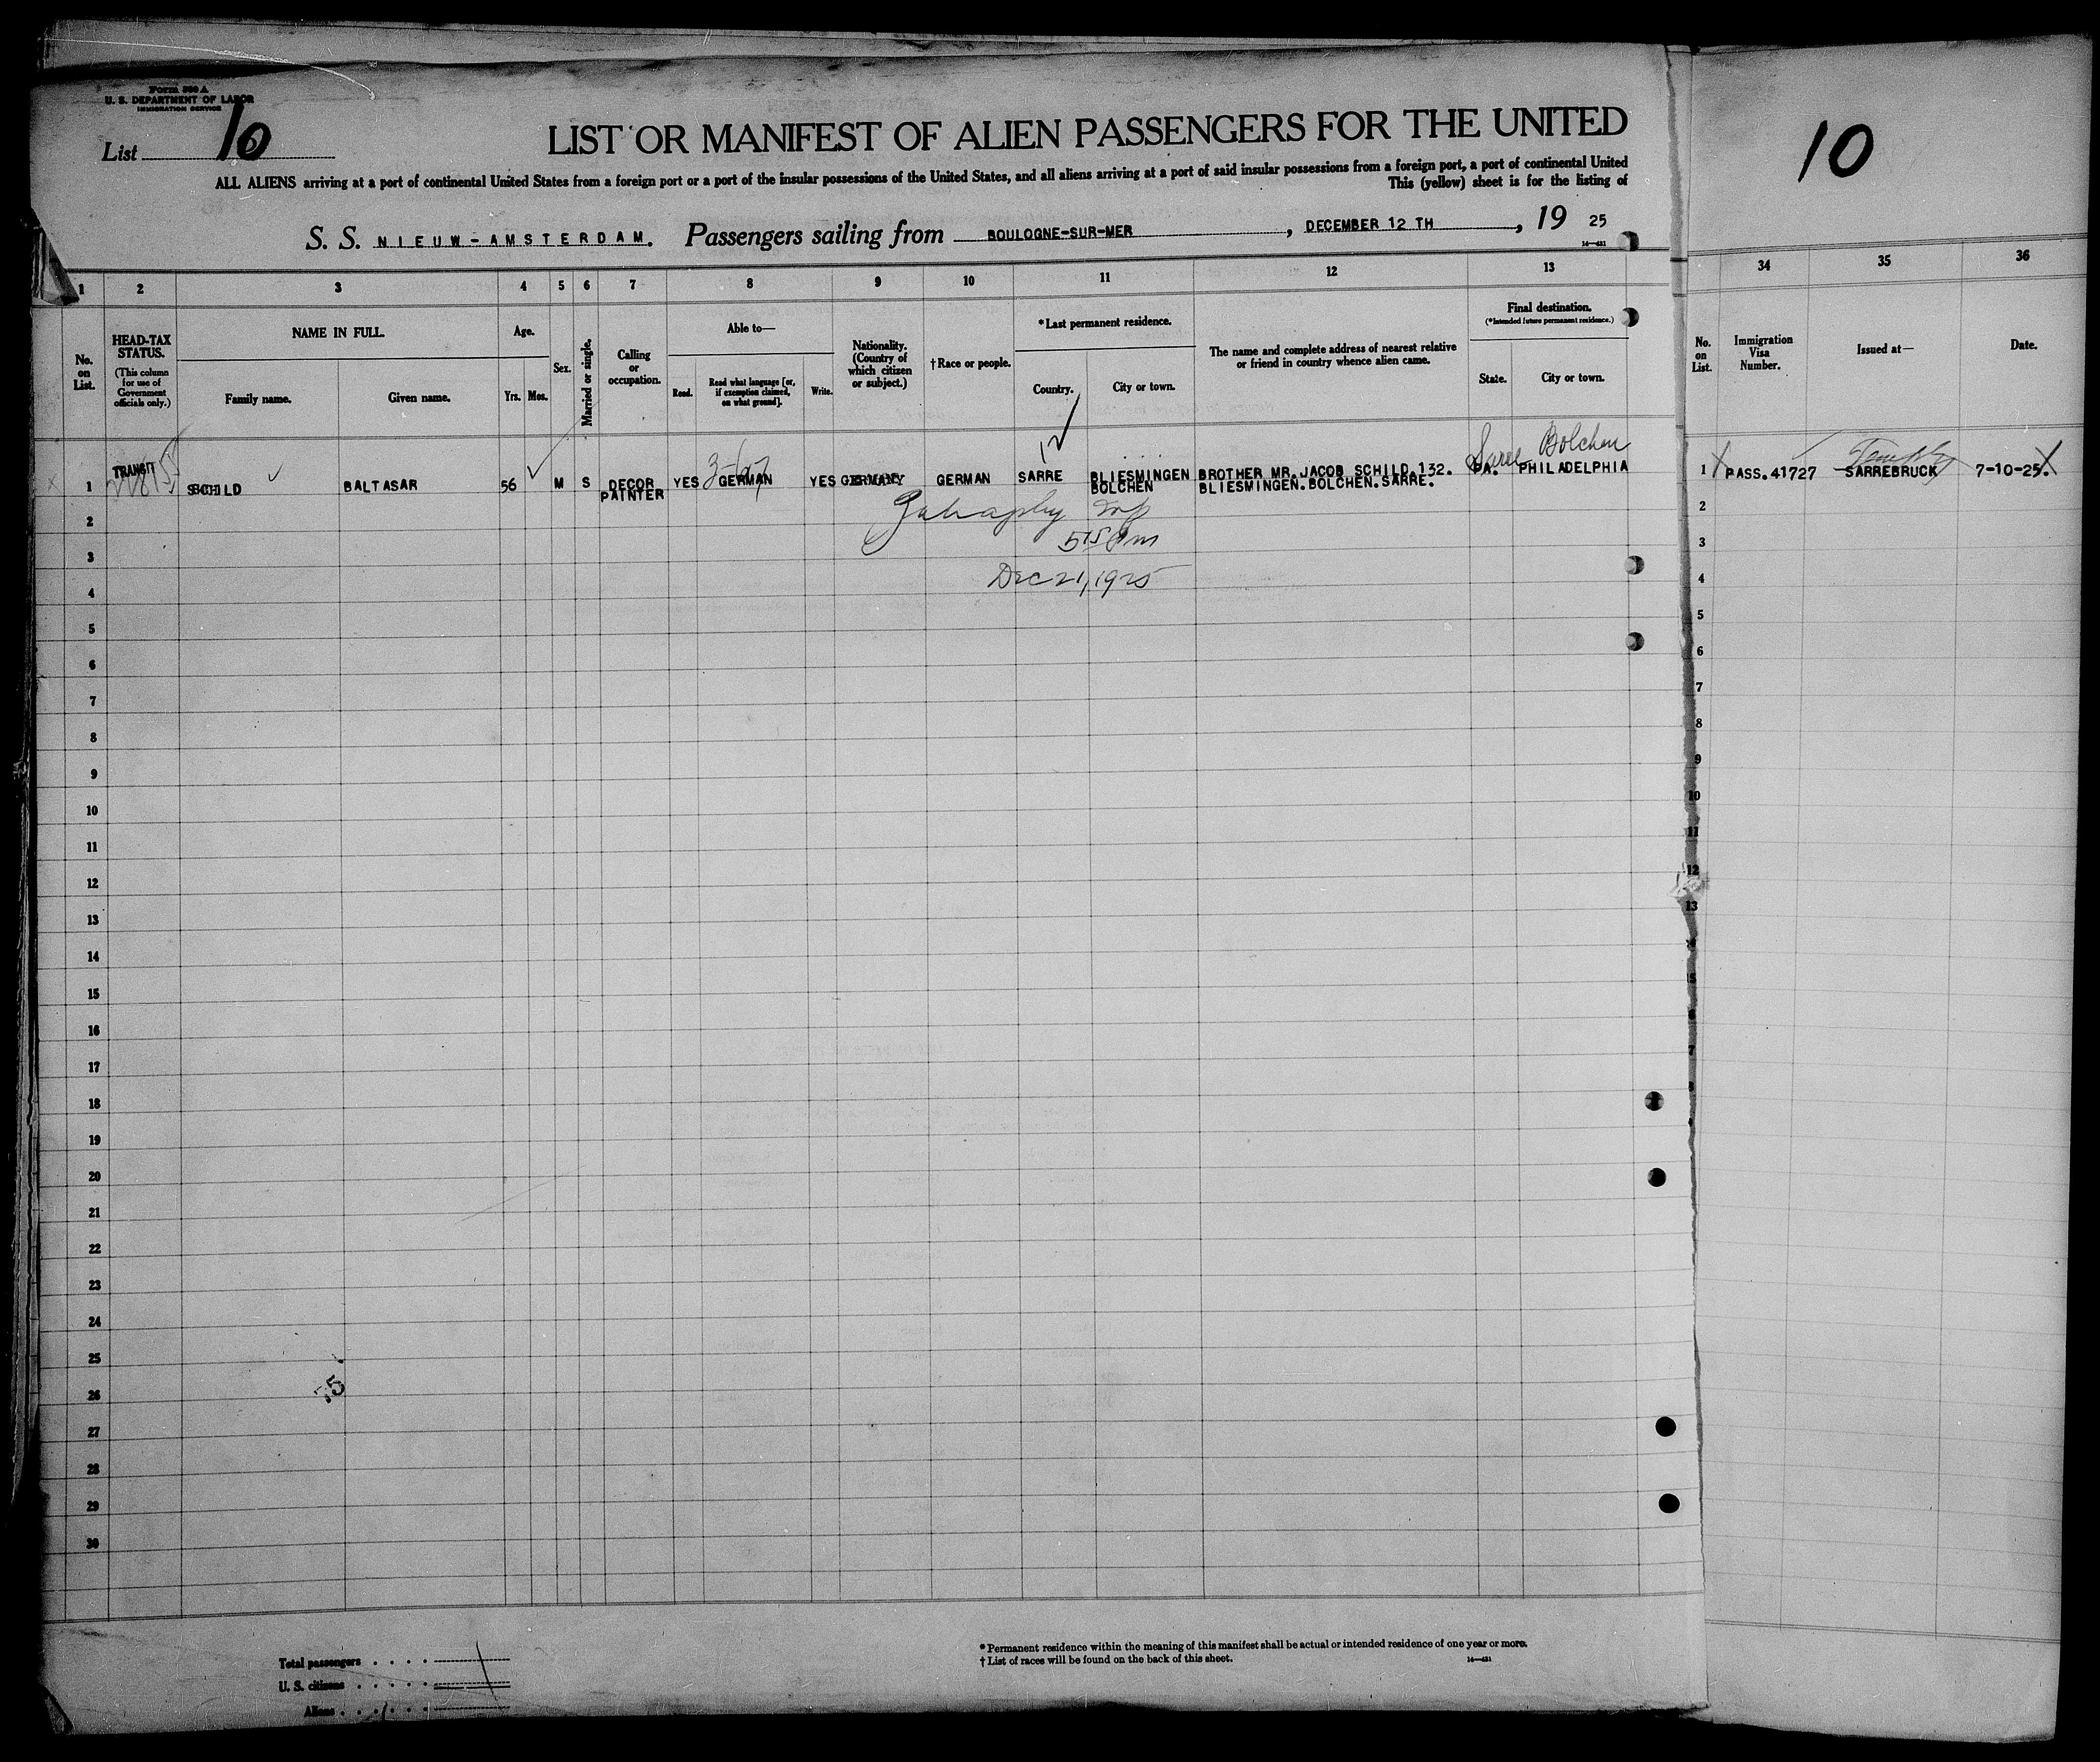 Form 500 A
U. S. DEPARTMENT OF LABOR
IMMIGRATION SERVICE
List 10
LIST OR MANIFEST OF ALIEN PASSENGERS FOR THE UNITED
10
ALL ALIENS arriving at a port of continental United States from a foreign port or a port of the insular possessions of the United States, and all aliens arriving at a port of said insular possessions from a foreign port, a port of continental United
This (yellow) sheet is for the listing of
S. S. NIEUW-AMSTERDAM. Passengers sailing from BOULOGNE-SUR-MER, DECEMBER 12 TH, 19 25
14—431
1 2 3 4 5 6 7 8 9 10 11 12 13 34 35 36
No. on List.
HEAD-TAX STATUS.
(This column for use of Government officials only.)
NAME IN FULL.
Family name. Given name.
Age.
Yrs. Mos.
Sex.
Married or single.
Calling or occupation.
Able to—
Read. Read what language [or, if exemption claimed, on what ground]. Write.
Nationality. (Country of which citizen or subject.)
†Race or people.
*Last permanent residence.
Country. City or town.
The name and complete address of nearest relative or friend in country whence alien came.
Final destination.
(*Intended future permanent residence.)
State. City or town.
No. on List.
Immigration Visa Number.
Issued at—
Date.
Sarre Bolchen
1 TRANSIT SCHILD BALTASAR 56 M S DECOR PAINTER YES GERMAN YES GERMANY GERMAN SARRE BLIESMINGEN BOLCHEN BROTHER MR. JACOB SCHILD.132. BLIESMINGEN.BOLCHEN.SARRE. PA. PHILADELPHIA 1 PASS.41727 SARREBRUCK 7-10-25.
5 15 Pm
Dec 21, 1925
2 2
3 3
4 4
5 5
6 6
7 7
8 8
9 9
10 10
11 11
12 12
13 13
14
15
16
17
18
19
20
21
22
23
24
25
26
27
28
29
30
Total passengers
U. S. citizens
Aliens
*Permanent residence within the meaning of this manifest shall be actual or intended residence of one year or more.
†List of races will be found on the back of this sheet.
14—431